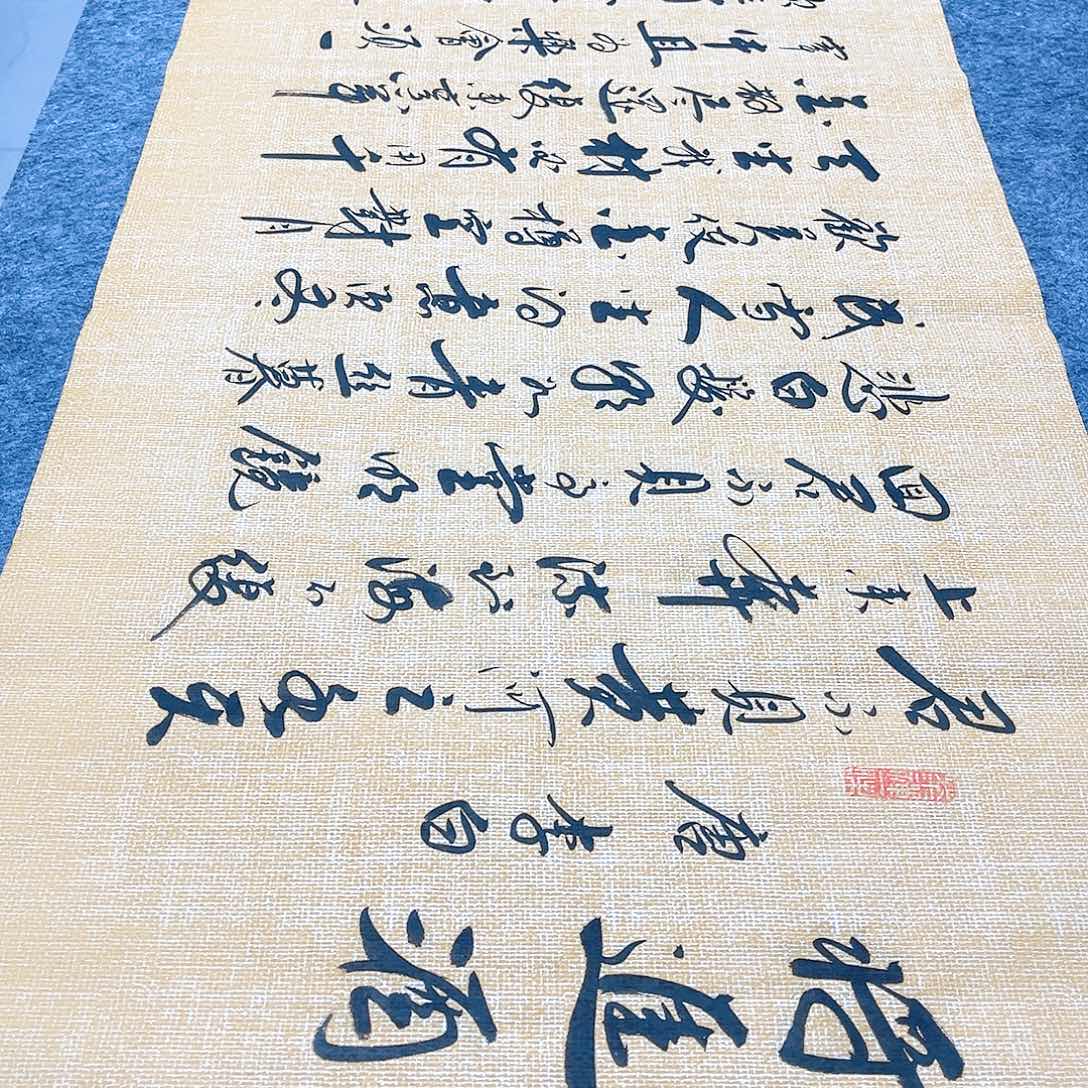 將進酒
唐李白
君不見黃河之水天
上來奔流到海不復
回君不見高堂明鏡
悲白髮朝如青絲暮
成雪人生得意須盡
歡莫使金樽空對月
天生我材必有用千
金散盡還復來烹羊
宰牛且為樂會須一